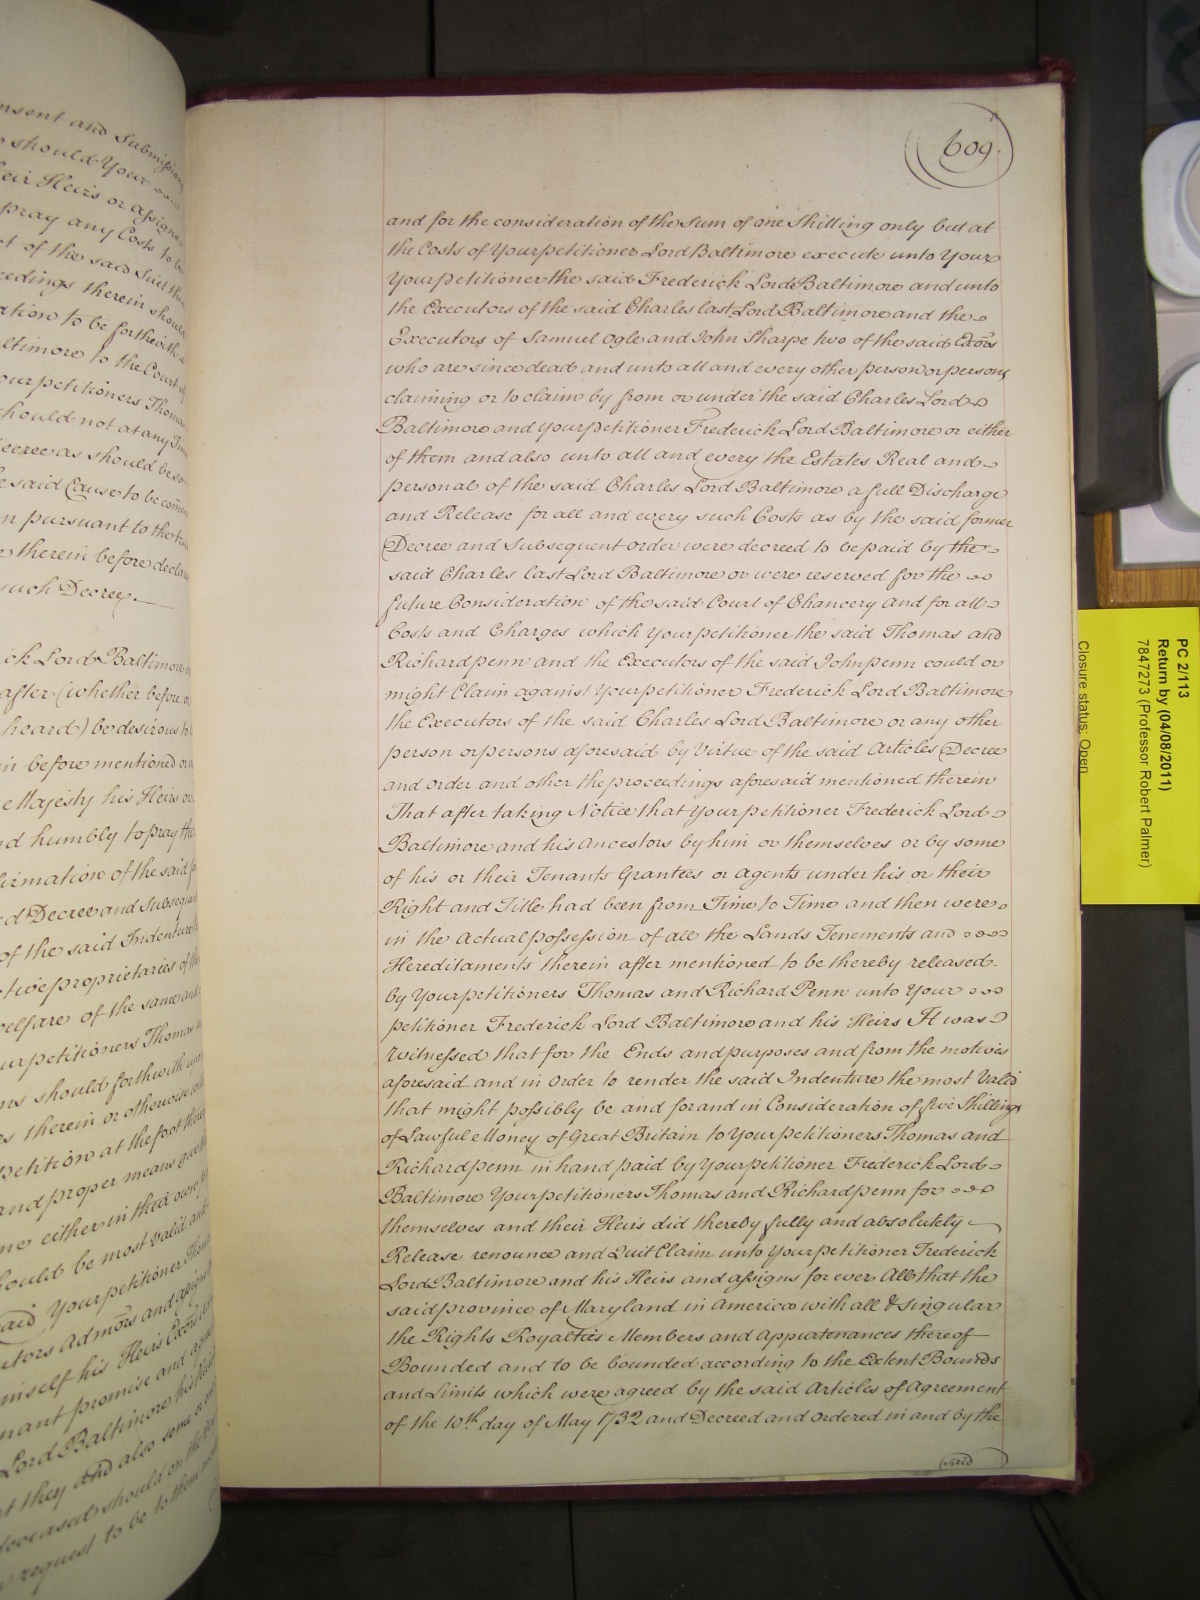 nsent and Submission
should Your
eir Heirs or assigns
pray any Costs to be
ct of the said Suit
eedings therein should
ation to be forthwith
ltimore to the Court of
our petitioners Thomas
hould not at any Time
ecree as should be so
e said Cause to be
n pursuant to the
therein before
such Decree.
ck Lord Baltimore
after (whether before or
heard) be desirous to
in before mentioned or
e Majesty his Heirs or
d humbly to pray the
firmation of the said
d Decree and Subsequent
of the said Indenture
tive proprietaries of
elfare of the same and
ur petitioners Thomas
ns should forthwith
s therein or otherwise
petition at the foot
and proper means
me either in their own
hould be most valid and
said Your petitioner
utors Admors and assigns
imself his Heirs Exors
nant promise and
Lord Baltimore his Heirs
t they and also some
deceased should on the
request to be to them
609.
and for the consideration of the Sum of one Shilling only but at
the Costs of Your petitioner Lord Baltimore execute unto Your
Your petitioner the said Frederick Lord Baltimore and unto
the Executors of the said Charles last Lord Baltimore and the
Executors of Samuel Ogle and John Sharpe two of the said Exors
who are since dead and unto all and every other person or persons
claiming or to claim by from or under the said Charles Lord
Baltimore and Your petitioner Frederick Lord Baltimore or either
of them and also unto all and every the Estates Real and
personal of the said Charles Lord Baltimore a full Discharge
and Release for all and every such Costs as by the said former
Decree and Subsequent order were decreed to be paid by the
said Charles last Lord Baltimore or were reserved for the
future Consideration of the said Court of Chancery and for all
Costs and Charges which Your petitioner the said Thomas and
Richard penn and the Executors of the said John penn could or
might Claim against Your petitioner Frederick Lord Baltimore
the Executors of the said Charles Lord Baltimore or any other
person or persons aforesaid by Virtue of the said Articles Decree
and order and other the proceedings aforesaid mentioned therein
That after taking Notice that Your petitioner Frederick Lord
Baltimore and his Ancestors by him or themselves or by some
of his or their Tenants Grantees or Agents under his or their
Right and Title had been from Time to Time and then were
in the actual possession of all the Lands Tenements and
Hereditaments therein after mentioned to be thereby released
by Your petitioners Thomas and Richard Penn unto Your
petitioner Frederick Lord Baltimore and his Heirs It was
Witnessed that for the Ends and purposes and from the motives
aforesaid and in order to render the said Indenture the most Valid
that might possibly be and for and in Consideration of five Shillings
of Lawful Money of Great Britain to Your petitioners Thomas and
Richard penn in hand paid by Your petitioner Frederick Lord
Baltimore Your petitioners Thomas and Richard penn for
themselves and their Heirs did thereby fully and absolutely
Release renounce and Quit Claim unto Your petitioner Frederick
Lord Baltimore and his Heirs and assigns for ever All that the
said province of Maryland in America with all & singular
the Rights Royalties Members and Appurtenances thereof
Bounded and to be bounded according to the Extent Bounds
and Limits which were agreed by the said Articles of Agreement
of the 10th day of May 1732 and Decreed and Ordered in and by the
said
PC 2/113
Return by (04/08/2011)
7847273 (Professor Robert Palmer)
Closure status: Open